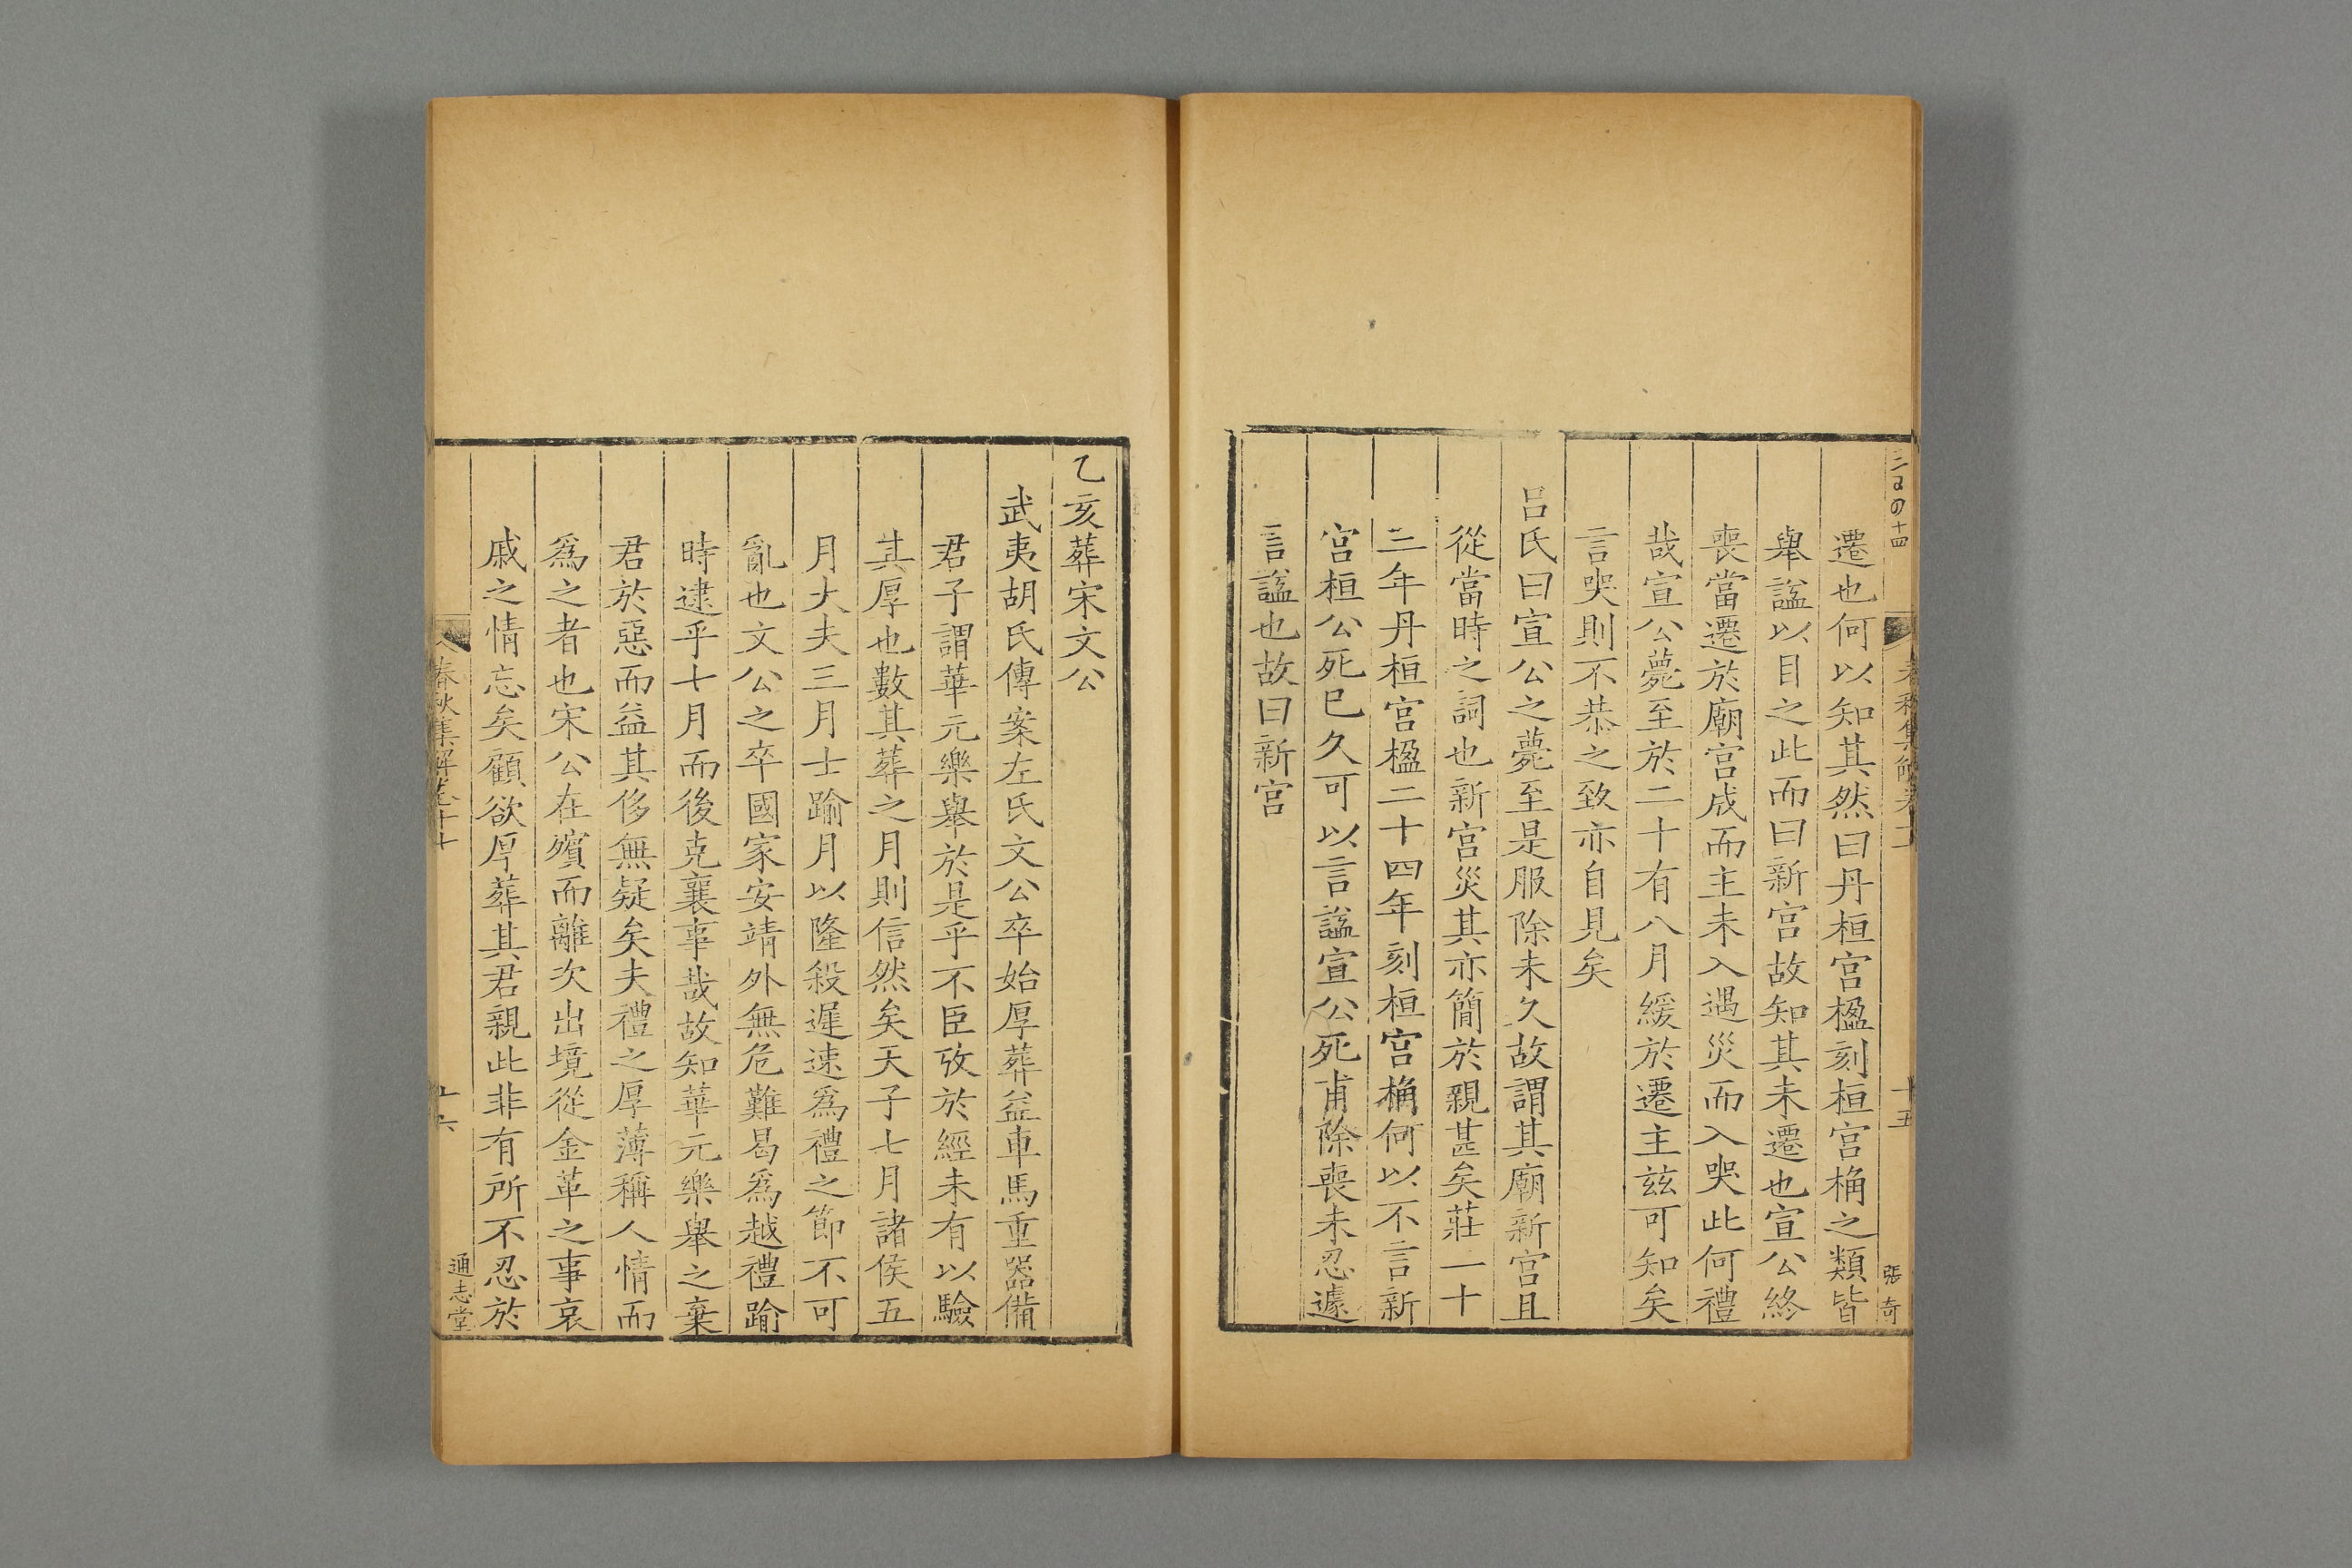 遷也何以知其然曰丹桓宮楹刻桓宮桷之類皆
舉諡以目之此而曰新宮故知其未遷也宣公終
喪當遷於廟宮成而主未入遇災而入哭此何禮
哉宣公薨至於二十有八月緩於遷主兹可知矣
言哭則不恭之致亦自見矣
吕氏曰宣公之薨至是服除未久故謂其廟新宮且
從當時之詞也新宮災其亦簡於親甚矣莊一十
三年丹桓宮楹二十四年刻桓宮桷何以不言新
宮桓公死已久可以言諡宣公死甫除喪未忍遽
言諡也故曰新宮
十五
張奇
乙亥葬宋文公
武夷胡氏傳案左氏文公卒始厚葬益車馬重器備
君子謂華元樂舉於是乎不臣攷於經未有以驗
其厚也數其葬之月則信然矣天子七月諸侯五
月大夫三月士踰月以隆殺遲速為禮之節不可
亂也文公之卒國家安靖外無危難曷為越禮踰
時逮乎七月而後克襄事哉故知華元樂舉之棄
君於惡而益其侈無疑矣夫禮之厚薄稱人情而
為之者也宋公在殯而離次出境從金革之事哀
戚之情忘矣顧欲厚葬其君親此非有所不忍於
春秋集解卷十七
十六
通志堂